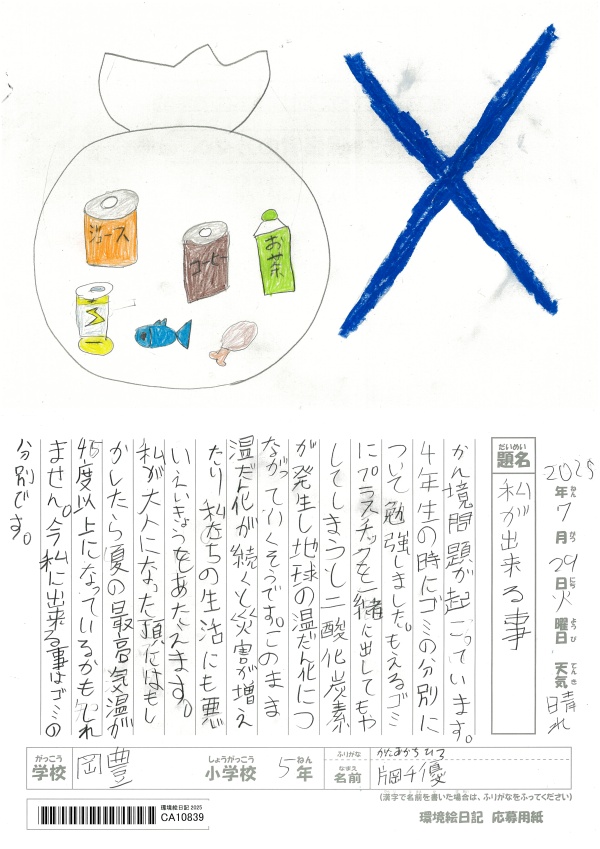 ジュース
コーヒー
お茶
2025年7月29日火曜日 天気晴れ
ねん
がつ
にち
ようび
てんき
だいめい
題名
私が出来る事
かん境問題が起こっています。
4年生の時にゴミの分別に
ついて勉強しました。もえるゴミ
にプラスチックを一緒に出してもや
してしまうと二酸化炭素
が発生し地球の温だん化につ
ながっていくそうです。このまま
温だん化が続くと災害が増え
たり私たちの生活にも悪
いえいきょうをあたえます。
私が大人になった頃にはもし
かしたら夏の最高気温が
45度以上になっているかもしれ
ません。今私に出来る事はゴミの
分別です。
がっこう
学校
豊岡
しょうがっこう
小学校
5年
ねん
ふりがな
なまえ
名前
片岡千優
(漢字で名前を書いた場合は、ふりがなをふってください)
環境絵日記 応募用紙
環境絵日記 2025
CA10839